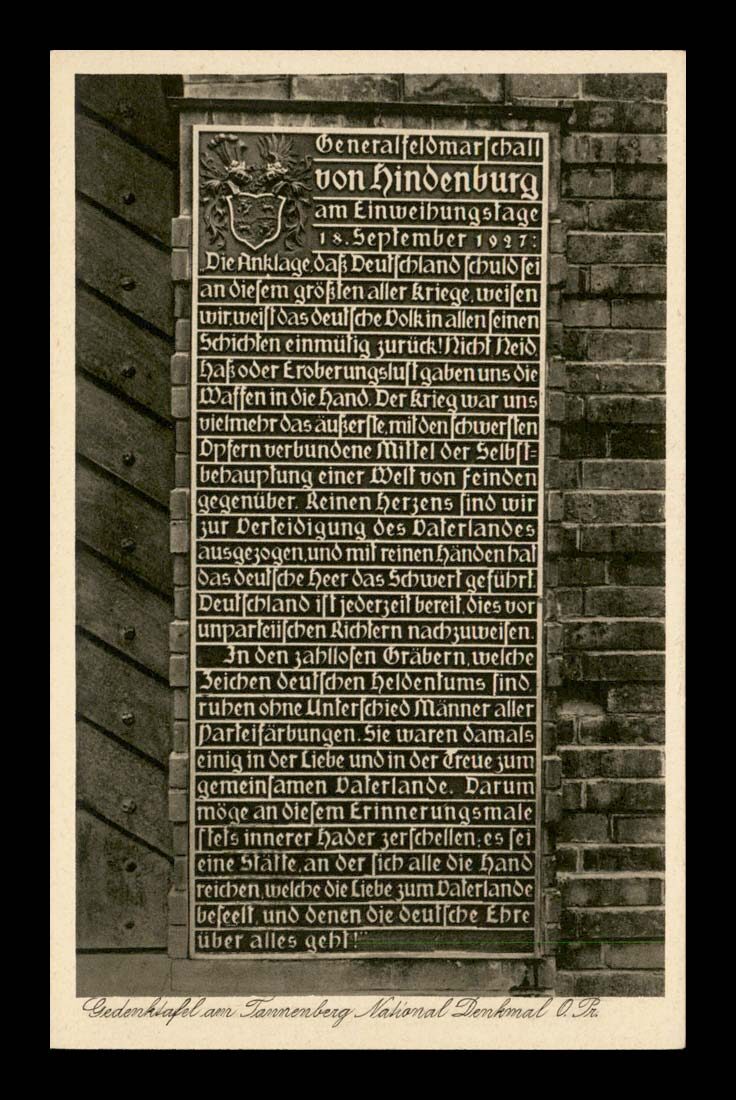 Generalfeldmarschall
von Hindenburg
am Einweihungstage
18. September 1927:
„Die Anklage, daß Deutschland schuld sei
an diesem größten aller Kriege, weisen
wir, weist das deutsche Volk in allen seinen
Schichten einmütig zurück! Nicht Neid,
Haß oder Eroberungslust gaben uns die
Waffen in die Hand. Der Krieg war uns
vielmehr das äußerste, mit den schwersten
Opfern verbundene Mittel der Selbst=
behauptung einer Welt von Feinden
gegenüber. Reinen Herzens sind wir
zur Verteidigung des Vaterlandes
ausgezogen, und mit reinen Händen hat
das deutsche Heer das Schwert geführt.
Deutschland ist jederzeit bereit, dies vor
unparteiischen Richtern nachzuweisen.
In den zahllosen Gräbern, welche
Zeichen deutschen Heldentums sind,
ruhen ohne Unterschied Männer aller
Parteifärbungen. Sie waren damals
einig in der Liebe und in der Treue zum
gemeinsamen Vaterlande. Darum
möge an diesem Erinnerungsmale
stets innerer Hader zerschellen; es sei
eine Stätte, an der sich alle die Hand
reichen, welche die Liebe zum Vaterlande
beseelt, und denen die deutsche Ehre
über alles geht!"
Gedenktafel am Tannenberg National Denkmal O. Pr.